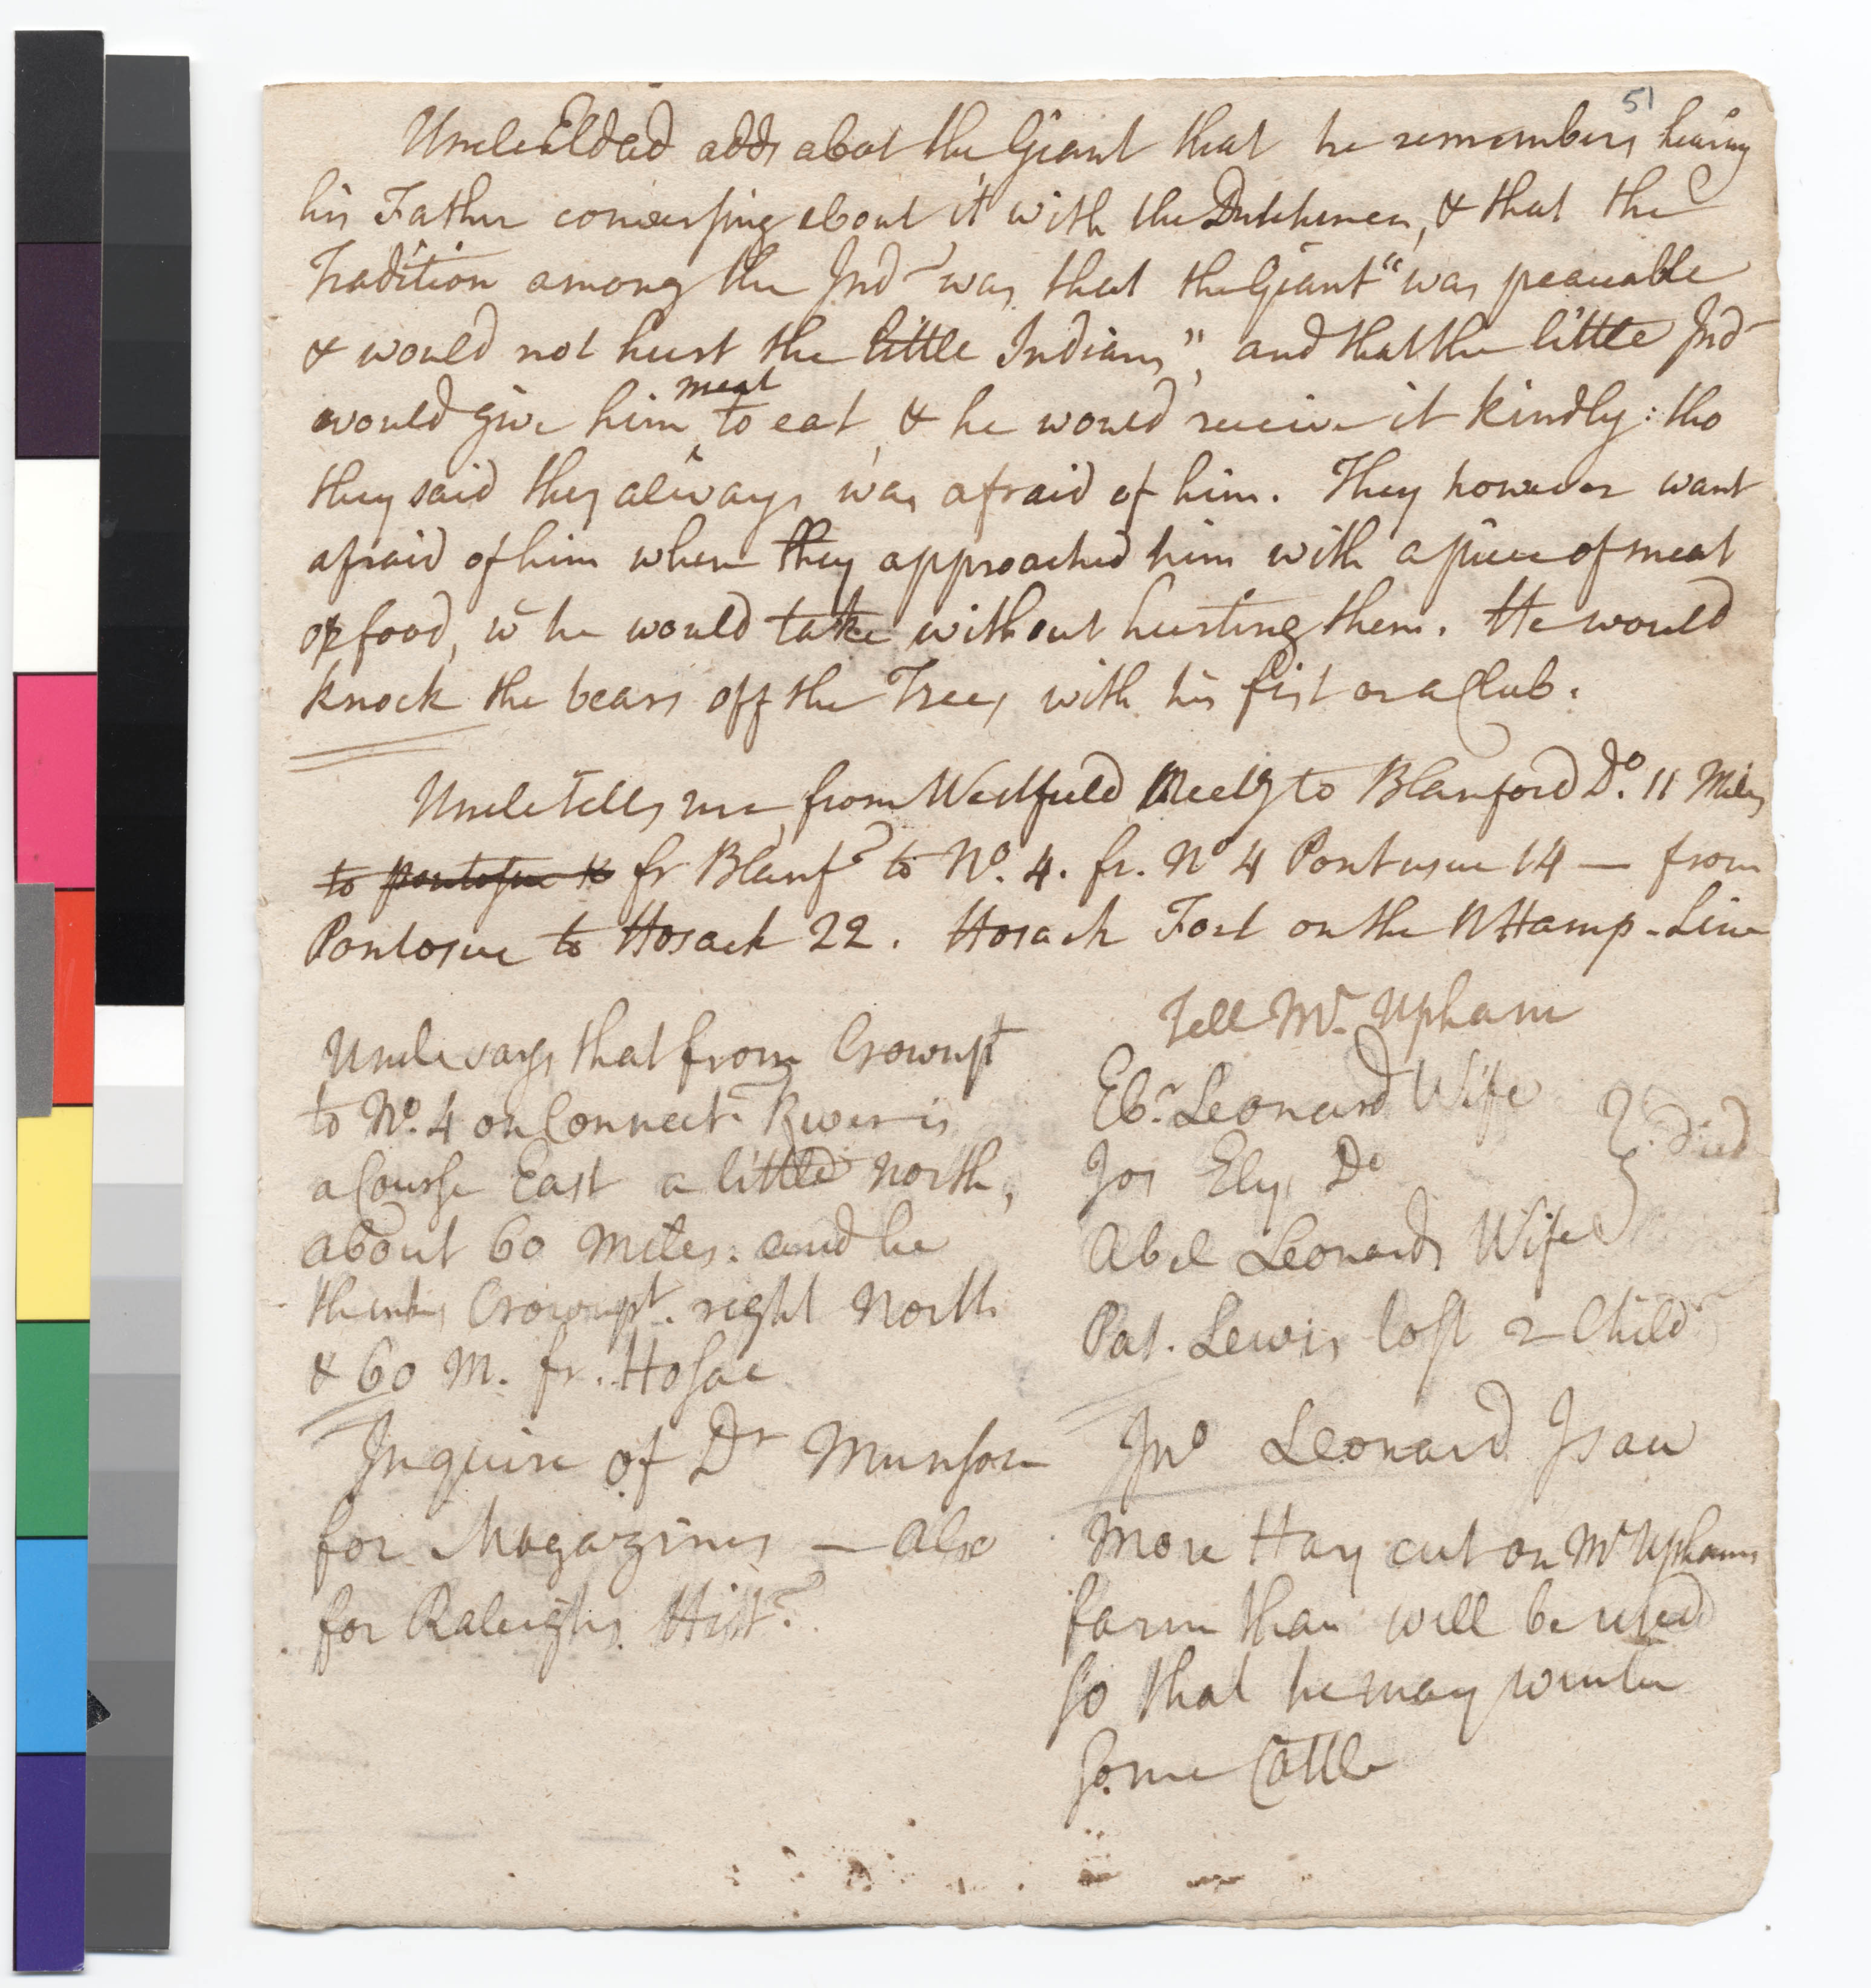 51
Uncle Eldad adds about the Giant that he remembers hearing
his Father conversing about it with the Dutchmen, & that the
Tradition among the Ind was that the Giant "was peaceable
& would not hurt the little Indians", and that the little Ind
would give him meat to eat, & he would receive it kindly: tho
they said they always was afraid of him. They however want
afraid of him when they approached him with a piece of meat
or food, wc he would take without hurting them. He would
knock the bears off the Trees with his fist or a Club.
Uncle tells me, from Westfield Meetg to Blanford Do. 11 Miles
to pontosuc 1 fr Blanfd to No. 4. fr. No 4 Pontusuc 14 — from
Pontosuc to Hosack 22. Hosack Fort on the NHamp. Line
Uncle says that from Crownpt
to No. 4 on Connectt River is
a Course East a little North,
about 60 Miles. and he
thinks Crownpt. right North
& 60 M. fr. Hosac
Inquire of Dr Munson
for Magazines — also
for Raleighs Histy.
Tell Mr. Upham
Ebr. Leonard Wife
Jos Ely, Do
Abel Leonards Wife
died
Pat. Lewis lost 2 Childn
Jno Leonard Isaac
More Hay cut on Mr Uphams
farm than will be used
so that he may winter
some Cattle